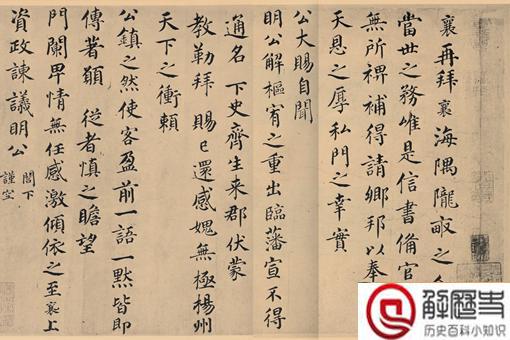 襄再拜襄海隅隴畝之
當世之務唯是信書備官
無所裨補得請鄉邦以奉
天恩之厚私門之幸實
公大賜自聞
明公解樞宥之重出臨藩宣不得
通名 下史齊生来郡伏蒙
教勒拜賜已還感媿無極楊州
天下之衝頼
公鎮之然使客盈前一語一默皆即
傳著願 從者慎之瞻望
門闌卑情無任感激傾依之至襄上
資政諫議明公 閣下
謹空
解历史
历史百科小知识